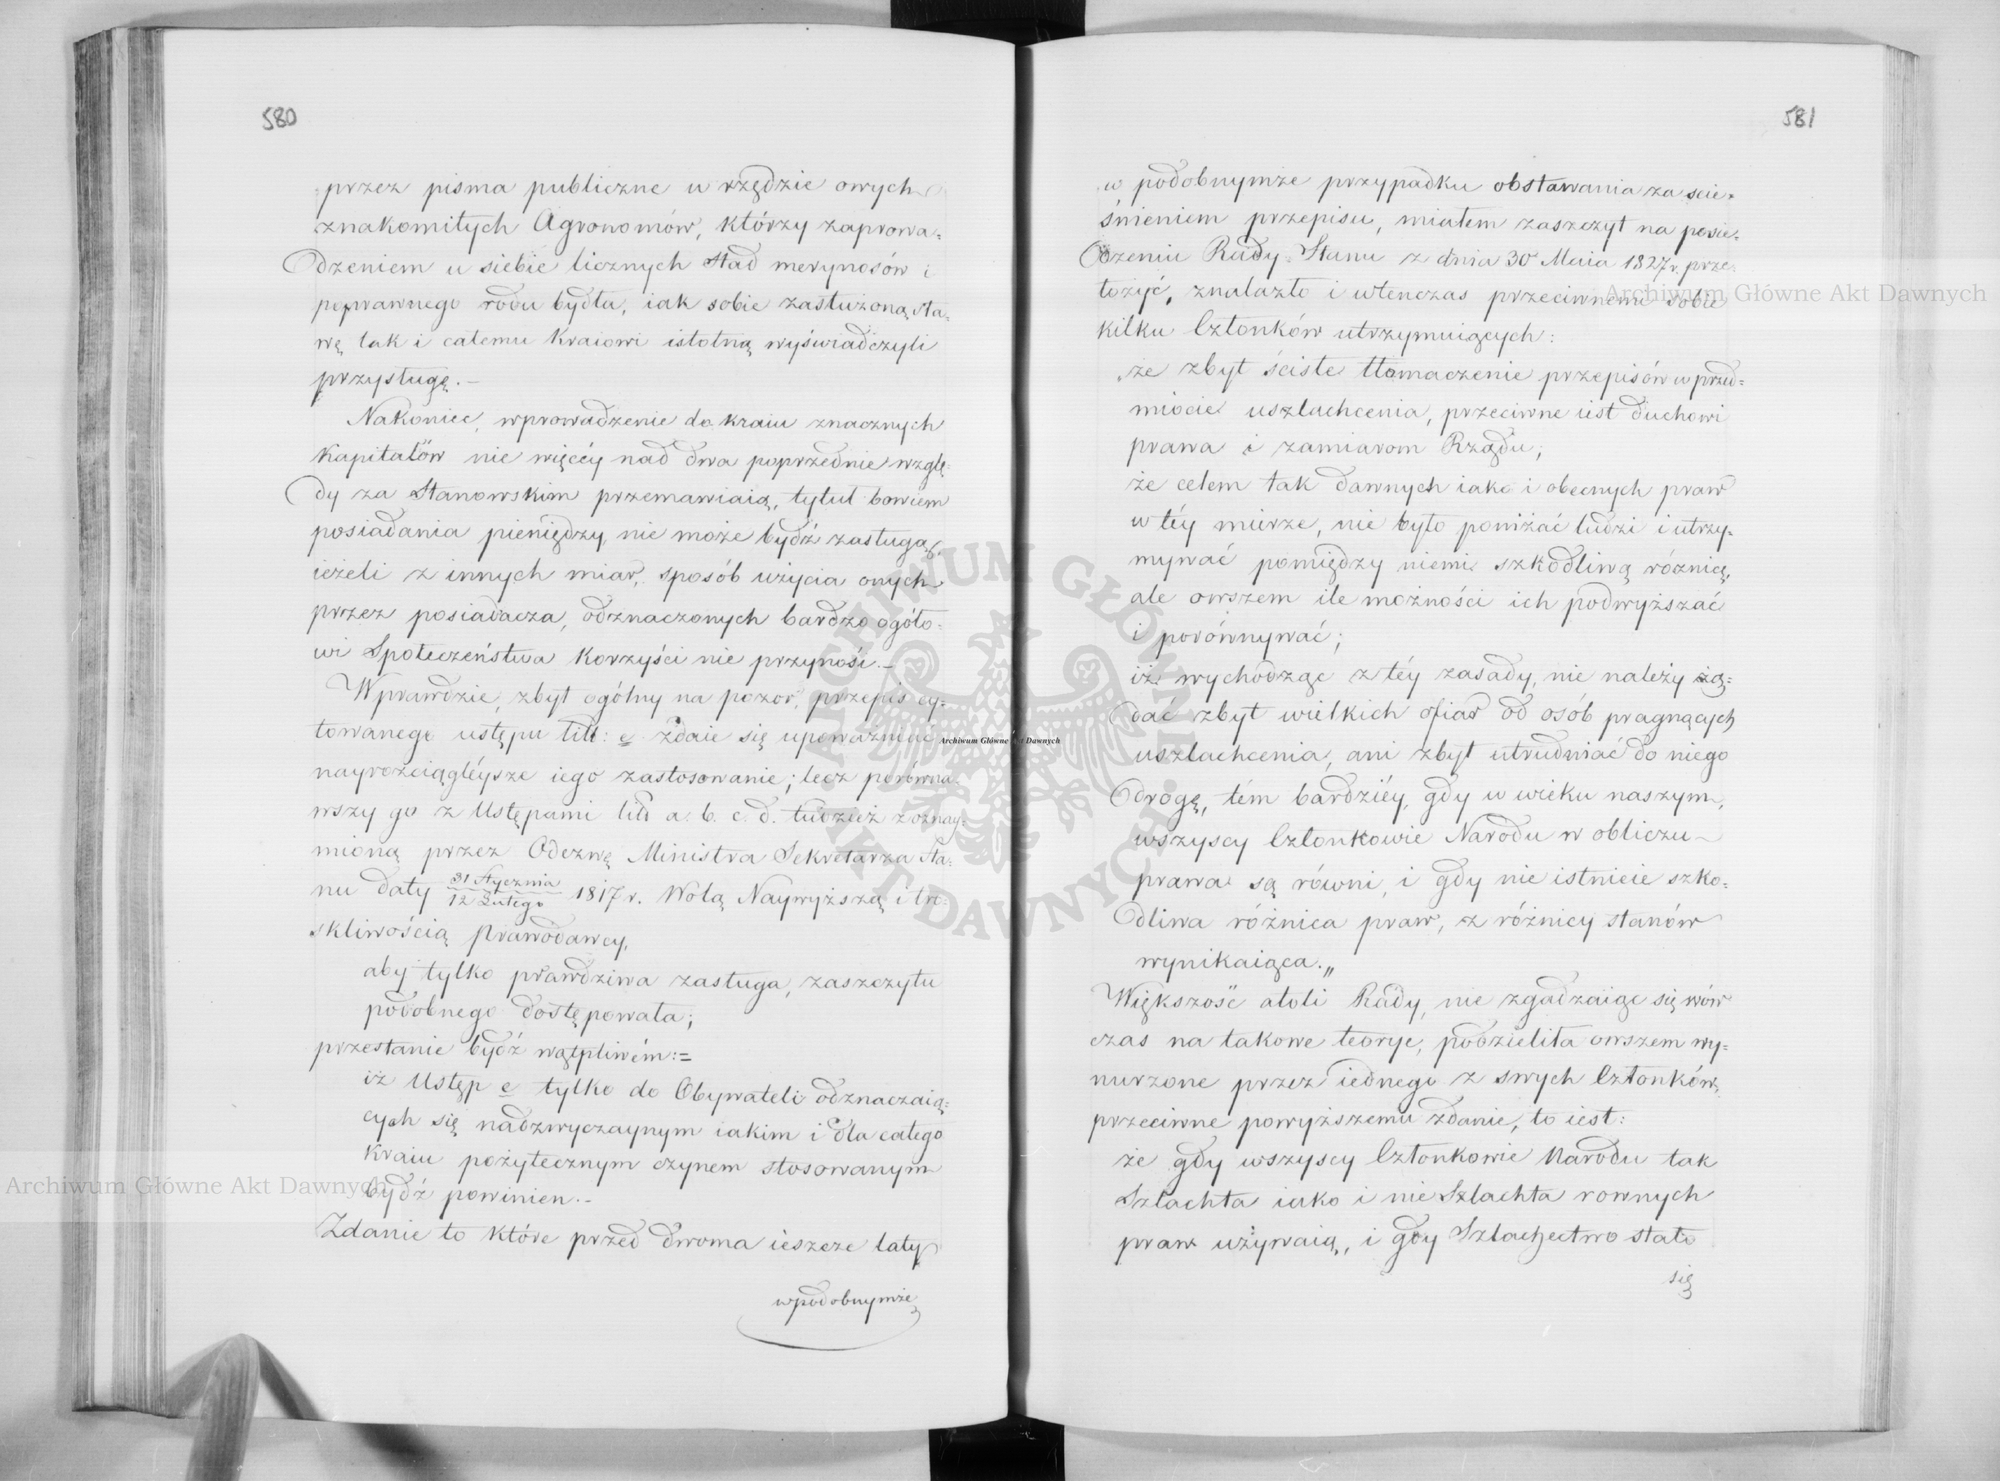 580
przez pisma publiczne w rzędzie owych
znakomitych Agronomów, którzy zaprowa=
dzeniem u siebie licznych stad merynosów i
poprawnego rodu bydła, iak sobie zasłużoną sła=
wę tak i całemu Kraiowi istotną wyświadczyli
przysługę.—
Nakoniec, wprowadzenie do kraiu znacznych
Kapitałów nie więcéy nad dwa poprzednie wzglę=
dy za Stanowskim przemawiaią, tytuł bowiem
posiadania pieniędzy nie może bydź zasługą,
ieżeli z innych miar, sposób użycia onych
przez posiadacza, odznaczonych bardzo ogóło=
wi Społeczeństwa Korzyści nie przynosi.—
Wprawdzie, zbyt ogólny na pozor, przepis cy=
towanego ustępu litt: e zdaie się upoważniać
nayrozciągléysze iego zastosowanie; lecz porówna
wszy go z Ustępami litt a. b. c. d. tudzież z oznay=
mioną przez Odezwę Ministra Sekretarza Sta=
nu daty 31 Stycznia / 12 Lutego 1817 r. Wolą Naywyższą i tro=
skliwością Prawodawcy,
aby tylko prawdziwa zasługa, zaszczytu
podobnego dostępowała;
przestanie bydź wątpliwém:=
iż Ustęp e tylko do Obywateli odznaczaią=
cych się nadzwyczaynym iakim i dla całego
Kraiu pożytecznym czynem stosowanym
bydź powinien.—
Zdanie to które przed dwoma ieszcze laty
w podobnymże
581
w podobnymże przypadku obstawania za ście=
śnieniem przepisu, miałem zaszczyt na posie=
dzeniu Rady Stanu z dnia 30 Maia 1827 r. prze=
łożyć, znalazło i wtenczas przeciwnemi sobie
kilku Członków utrzymuiących:
że zbyt ściste tłomaczenie przepisów w przed=
miocie uszlachcenia, przeciwne iest duchowi
prawa i zamiarom Rządu;
że celem tak dawnych iako i obecnych praw
w téy mierze, nie było poniżać ludzi i utrzy=
mywać pomiędzy niemi szkodliwą różnicę,
ale owszem ile możności ich podwyższać
i porównywać;
iż wychodząc z téy zasady, nie należy żą=
dać zbyt wielkich ofiar od osób pragnących
uszlachcenia, ani zbyt utrudniać do niego
drogę, tém bardziéy, gdy w wieku naszym,
wszyscy Członkowie Narodu w obliczu
prawa są równi, i gdy nie istnieie szko=
dliwa różnica praw, z różnicy stanów
wynikaiąca.„
Większość atoli Rady, nie zgadzaiąc się wów
czas na takowe teorye, podzieliła owszem wy=
nurzone przez iednego z swych Członków,
przeciwne powyższemu zdanie, to iest:
że gdy wszyscy Członkowie Narodu tak
Szlachta iako i nie Szlachta rownych
praw używaią, i gdy Szlachectwo stało
się
Archiwum Główne Akt Dawnych
Archiwum Główne Akt Dawnych
Archiwum Główne Akt Dawnych
ARCHIWUM GŁÓWNE AKT DAWNYCH